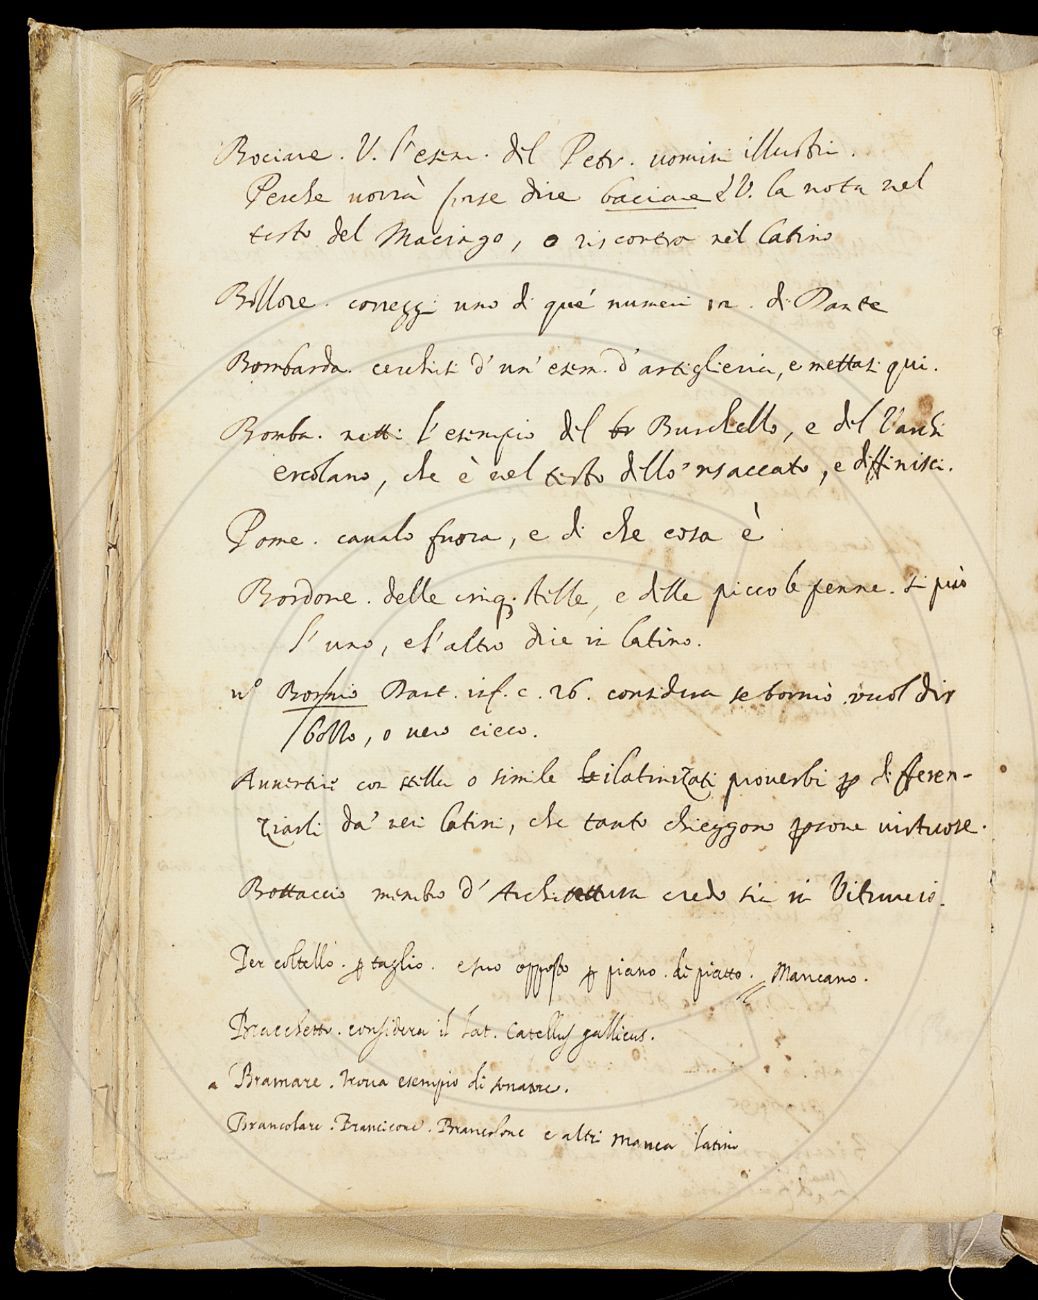 Bociare. V. l'esem. del Petr. uomini illustri.
Perche vorrà forse dire baciare & V. la nota nel
testo del Macingo, o riscontro nel latino
Bollore. correggi uno di que' numeri in. di Dante
Bombarda. cerchisi d'un'esem. d'artiglieria, e mettasi qui.
Bomba. metti l'esempio del br Burchello, e del Varchi
ercolano, che è nel testo dello 'nsaccato, e diffinisci.
Pome. cavalo fuora, e di che cosa è
Bordone. delle cinq. stille, e delle piccole penne. si può
l'uno, e l'altro dire in latino.
no Bornio Dant. inf. c. 26. considera se bornio vuol dir
bollo, o vero cieco.
Avvertire con stella o simile le ilatinizati proverbi p differen-
ziarli da' veri latini, che tanto chieggono psone virtuose.
Bottaccio membro d'Architettura credo sia in Vitruvio.
Per coltello. p taglio. e suo opposto p piano. di piatto. Mancano.
Bracchetto. considera il Lat. Catellus gallicus.
Bramare. trova esempio di senatore.
Brancolare. Brancicone. Brancolone e altri manca latino